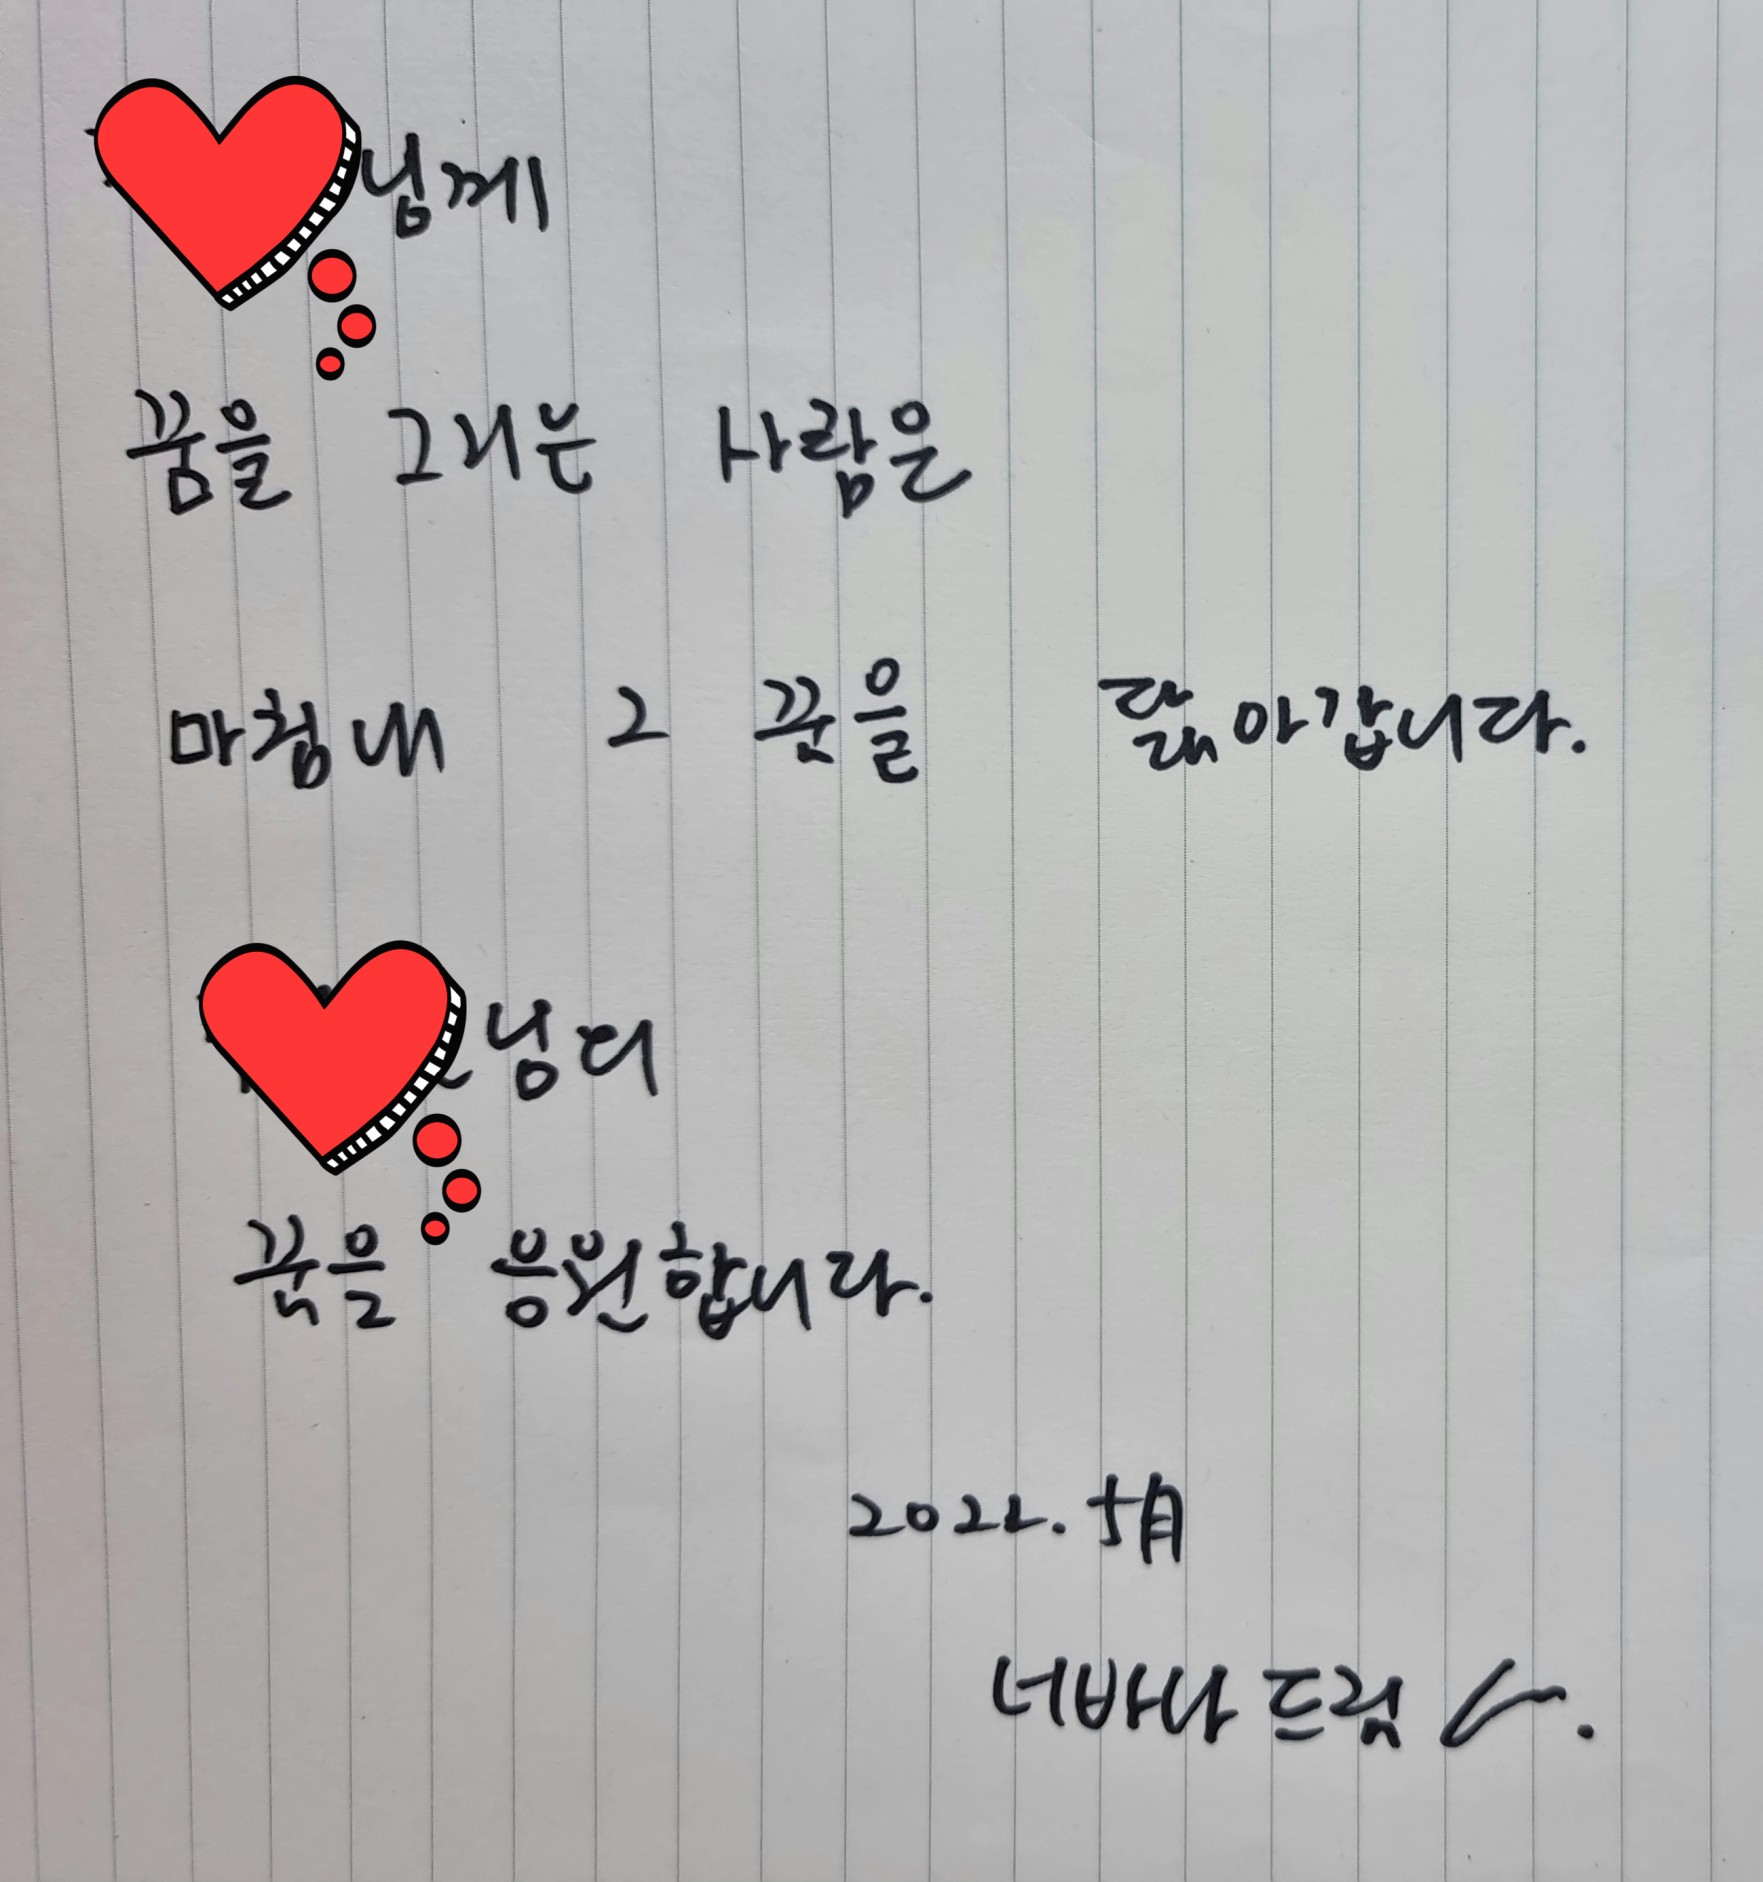 님께
꿈을 그리는 사람은
마침내 그 꿈을 닮아갑니다.
님의
꿈을 응원합니다.
2022. 5月
너바나 드림